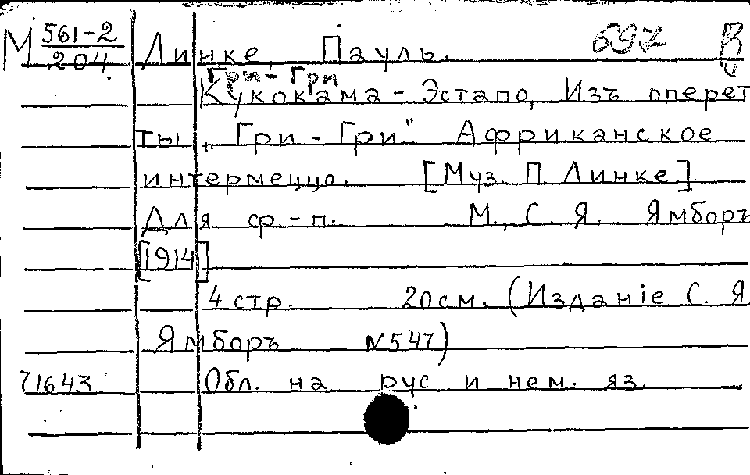 М 561-2/204 Линке, Пауль. 697 В
Гри-Гри
Кукокама-Эстапо, Изъ оперет
ты „Гри-Гри" Африканское
интермеццо. [Муз. П. Линке]
Для ср.-п. М., С. Я. Ямборъ
[1914]
4 стр. 20 см. (Изданіе С. Я.
Ямборъ №547)
71643 Обл. на рус и нем. яз.